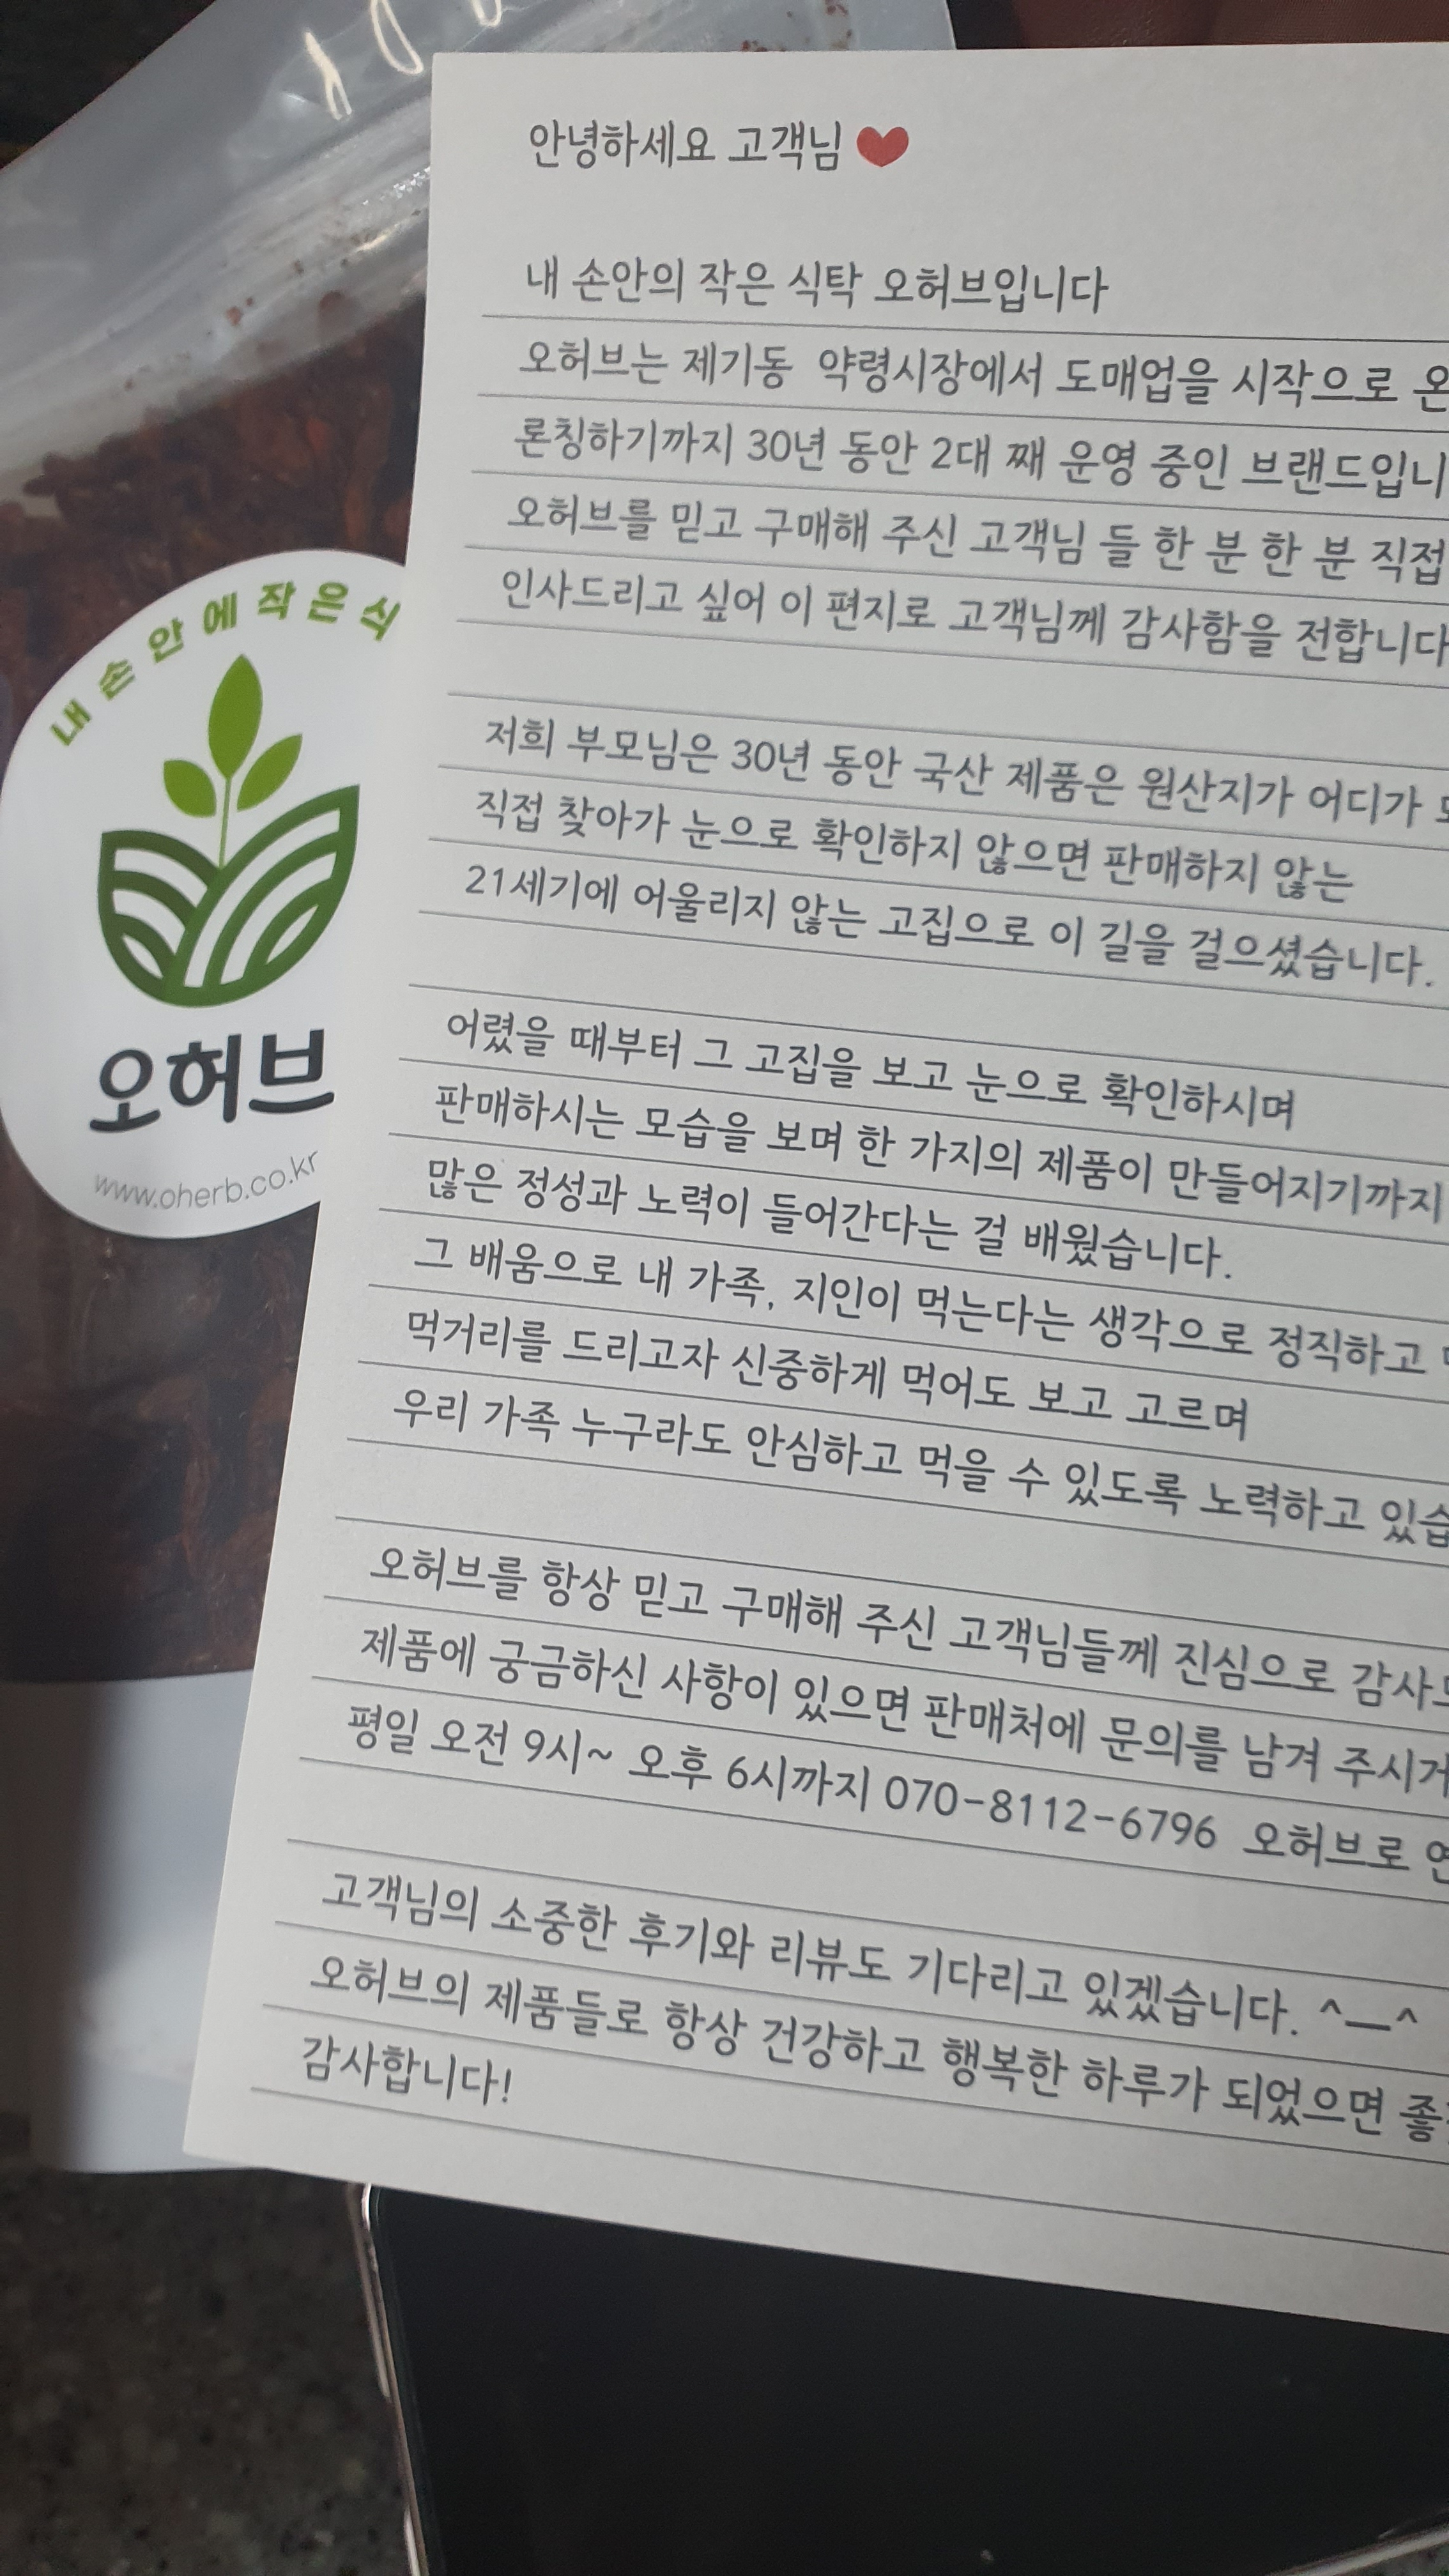 안녕하세요 고객님
내 손안의 작은 식탁 오허브입니다
오허브는 제기동 약령시장에서 도매업을 시작으로 온
론칭하기까지 30년 동안 2대 째 운영 중인 브랜드입니
오허브를 믿고 구매해 주신 고객님 들 한 분 한 분 직접
인사드리고 싶어 이 편지로 고객님께 감사함을 전합니다
저희 부모님은 30년 동안 국산 제품은 원산지가 어디가
직접 찾아가 눈으로 확인하지 않으면 판매하지 않는
21세기에 어울리지 않는 고집으로 이 길을 걸으셨습니다.
어렸을 때부터 그 고집을 보고 눈으로 확인하시며
판매하시는 모습을 보며 한 가지의 제품이 만들어지기까지
많은 정성과 노력이 들어간다는 걸 배웠습니다.
그 배움으로 내 가족, 지인이 먹는다는 생각으로 정직하고
먹거리를 드리고자 신중하게 먹어도 보고 고르며
우리 가족 누구라도 안심하고 먹을 수 있도록 노력하고 있습
오허브를 항상 믿고 구매해 주신 고객님들께 진심으로 감사
제품에 궁금하신 사항이 있으면 판매처에 문의를 남겨 주시거
평일 오전 9시~ 오후 6시까지 070-8112-6796 오허브로 연
고객님의 소중한 후기와 리뷰도 기다리고 있겠습니다. ^__^
오허브의 제품들로 항상 건강하고 행복한 하루가 되었으면 좋
감사합니다!
내 손 안 에 작 은 식
오허브
www.oherb.co.kr